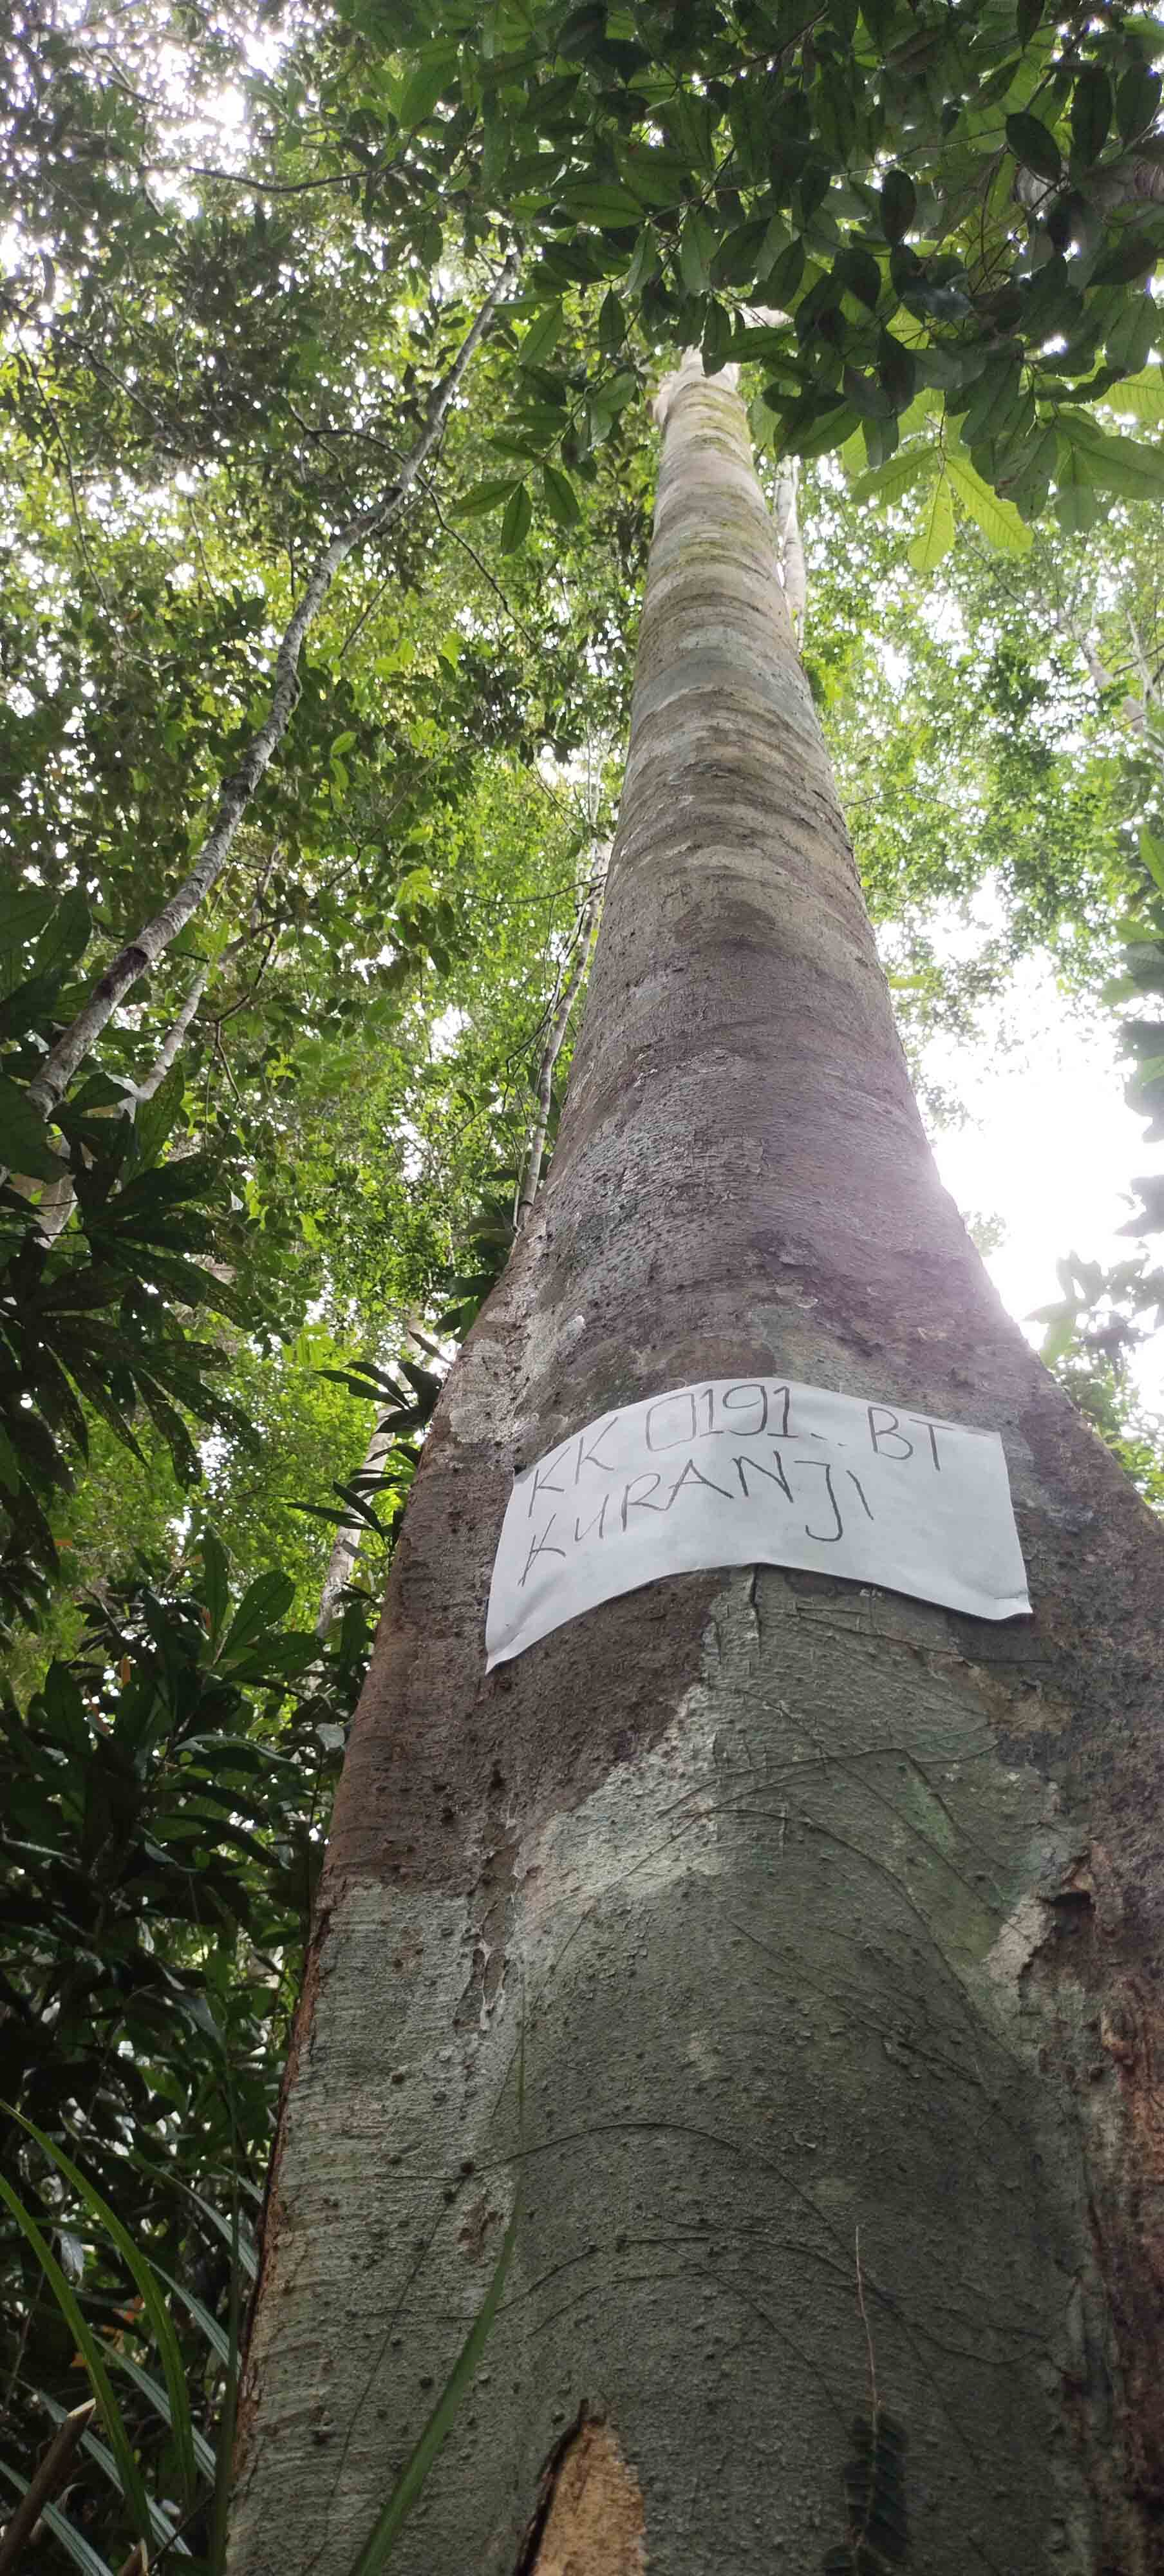 KK 0191.. BT
KURANJI